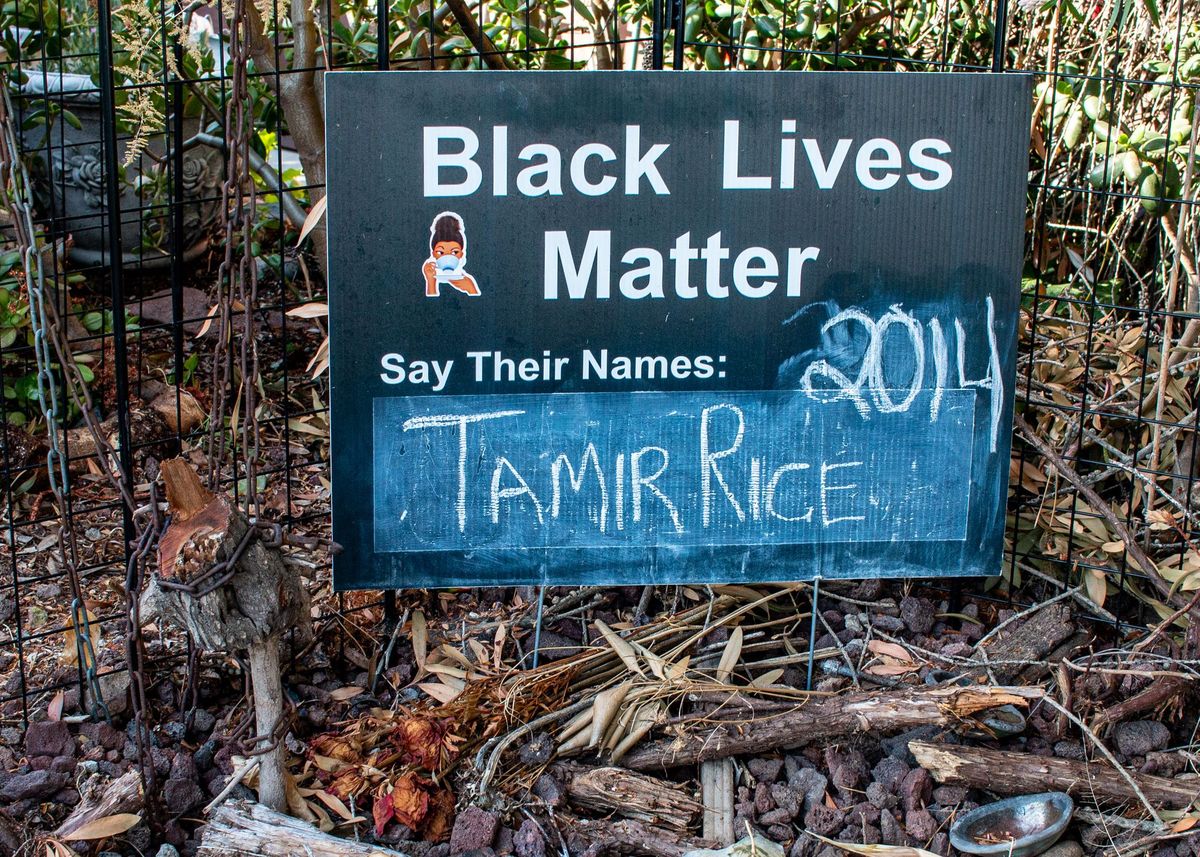 Black Lives
Matter
Say Their Names:
2014
TAMIR RICE